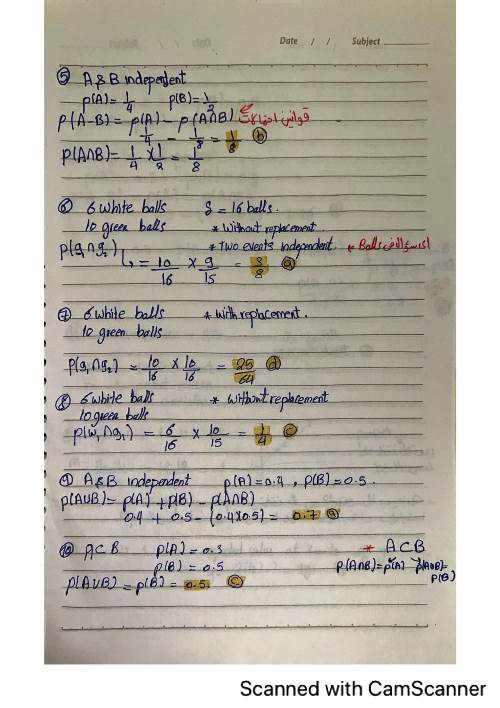 Date / / Subject
⑤ A & B independent
P(A) = 1/4 P(B) = 1/2
P(A-B) = P(A) - P(A∩B) قوانين احتمالات
1/4 - 1/8 = 1/8 ⓑ
P(A∩B) = 1/4 × 1/2 = 1/8
⑥ 6 white balls S = 16 balls.
10 green balls * without replacement.
P(g₁∩g₂) * Two events independent. * Balls
= 10/16 × 9/15 = 3/8 ⓐ
⑦ 6 white balls * with replacement.
10 green balls
P(g₁∩g₂) = 10/16 × 10/16 = 25/64 ⓓ
⑧ 6 white balls * without replacement
10 green balls
P(w₁∩g₁) = 6/16 × 10/15 = 1/4 ⓒ
⑨ A & B independent P(A) = 0.4 , P(B) = 0.5.
P(A∪B) = P(A) + P(B) - P(A∩B)
0.4 + 0.5 - (0.4×0.5) = 0.7 ⓐ
⑩ A⊂B P(A) = 0.3 * A⊂B
P(B) = 0.5 P(A∩B) = P(A) P(A∪B) =
P(B)
P(A∪B) = P(B) = 0.5. ⓒ
Scanned with CamScanner